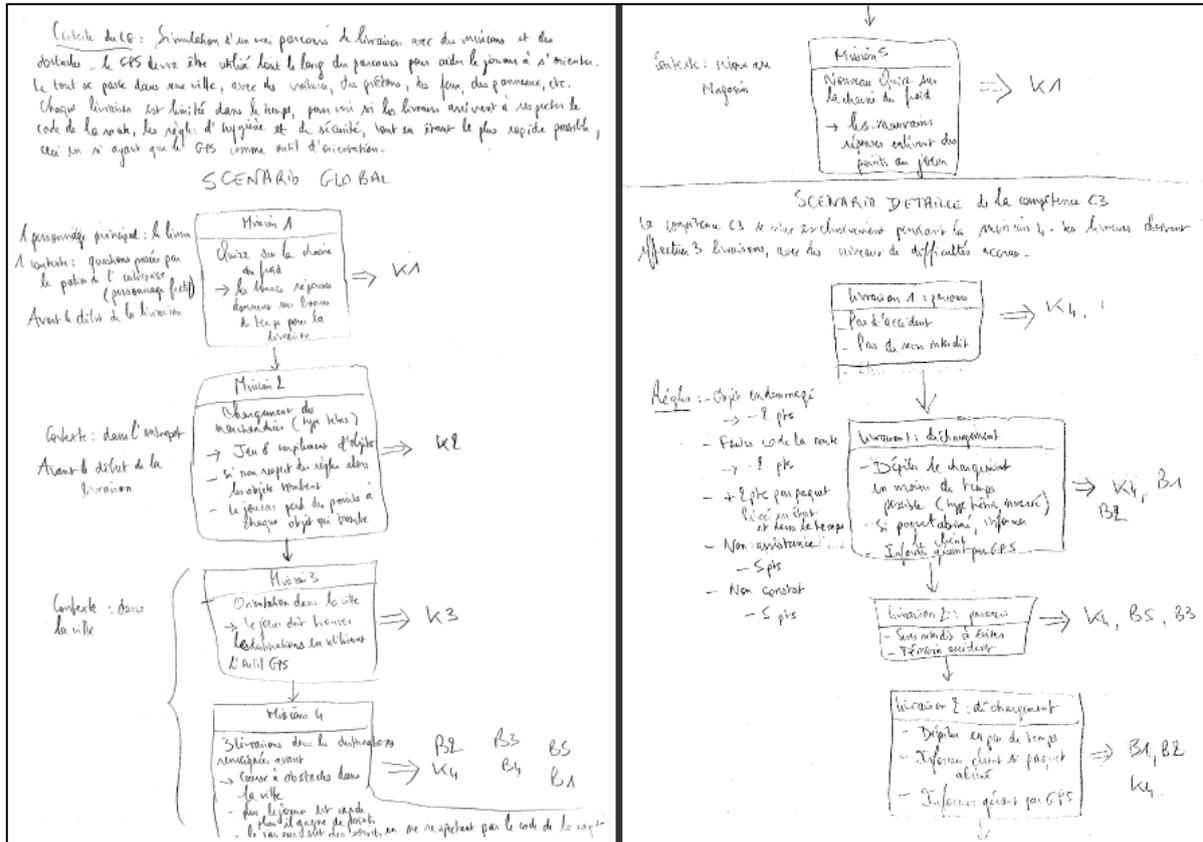 Contexte du LG : Simulation d'un vrai parcours de livraison avec des missions et des
obstacles. Le GPS devra être utilisé tout le long du parcours pour aider le joueur à s'orienter.
Le tout se passe dans une ville, avec des voitures, des piétons, des feux, des panneaux, etc.
Chaque livraison est limitée dans le temps, pour voir si les livreurs arrivent à respecter le
code de la route, les règles d'hygiène et de sécurité, tout en étant le plus rapide possible,
ceci en n'ayant que le GPS comme outil d'orientation.
SCENARIO GLOBAL
1 personnage principal : le livreur
1 contexte : questions posées par
le patron de l'entreprise
(personnage fictif)
Avant le début de la livraison
Mission 1
Quizz sur la chaîne
du froid
→ les bonnes réponses
donnent un bonus
de temps pour la
livraison
K1
Contexte : dans l'entrepôt
Avant le début de la
livraison
Mission 2
Chargement des
marchandises (type tetris)
→ Jeu d'empilement d'objets
- Si non respect des règles alors
les objets tombent
- Le joueur perd des points à
chaque objet qui tombe
K2
Contexte : dans
la ville
Mission 3
Orientation dans la ville
→ Le joueur doit trouver
les destinations en utilisant
l'outil GPS
K3
Mission 4
3 livraisons dans les destinations
renseignées avant
→ Course à obstacles dans
la ville
- plus le joueur est rapide
plus il gagne de points
en ne respectant pas le code de la
B2 B3 B5
K4 B4 B1
Contexte : retour au
Magasin
Mission 5
Nouveau Quizz sur
la chaîne du froid
→ les mauvaises
réponses enlèvent des
points au joueur
K1
SCENARIO DETAILLE de la compétence C3
La compétence C3 se vise exclusivement pendant la mission 4. Les livreurs doivent
effectuer 3 livraisons, avec des niveaux de difficultés accrus.
Livraison 1 : parcours
- Pas d'accident
- Pas de sens interdit
K4,
Règles : - Objet endommagé
→ -2 pts
- Fautes code de la route
→ -2 pts
- +2 pts par paquet
livré en état
et dans le temps
- Non assistance
- 5 pts
- Non constat
- 5 pts
Livraison 1 : déchargement
- Dépiler le chargement
en moins de temps
possible (type tetris inversé)
- Si paquet abimé, informer
le client
- Informer gérant par GPS
K4, B1
B2
Livraison 2 : parcours
- Sens interdit à éviter
- Témoin accident
K4, B5, B3
Livraison 2 : déchargement
- Dépiler en peu de temps
- Informer client si paquet
abimé
- Informer gérant par GPS
B1, B2
K4.